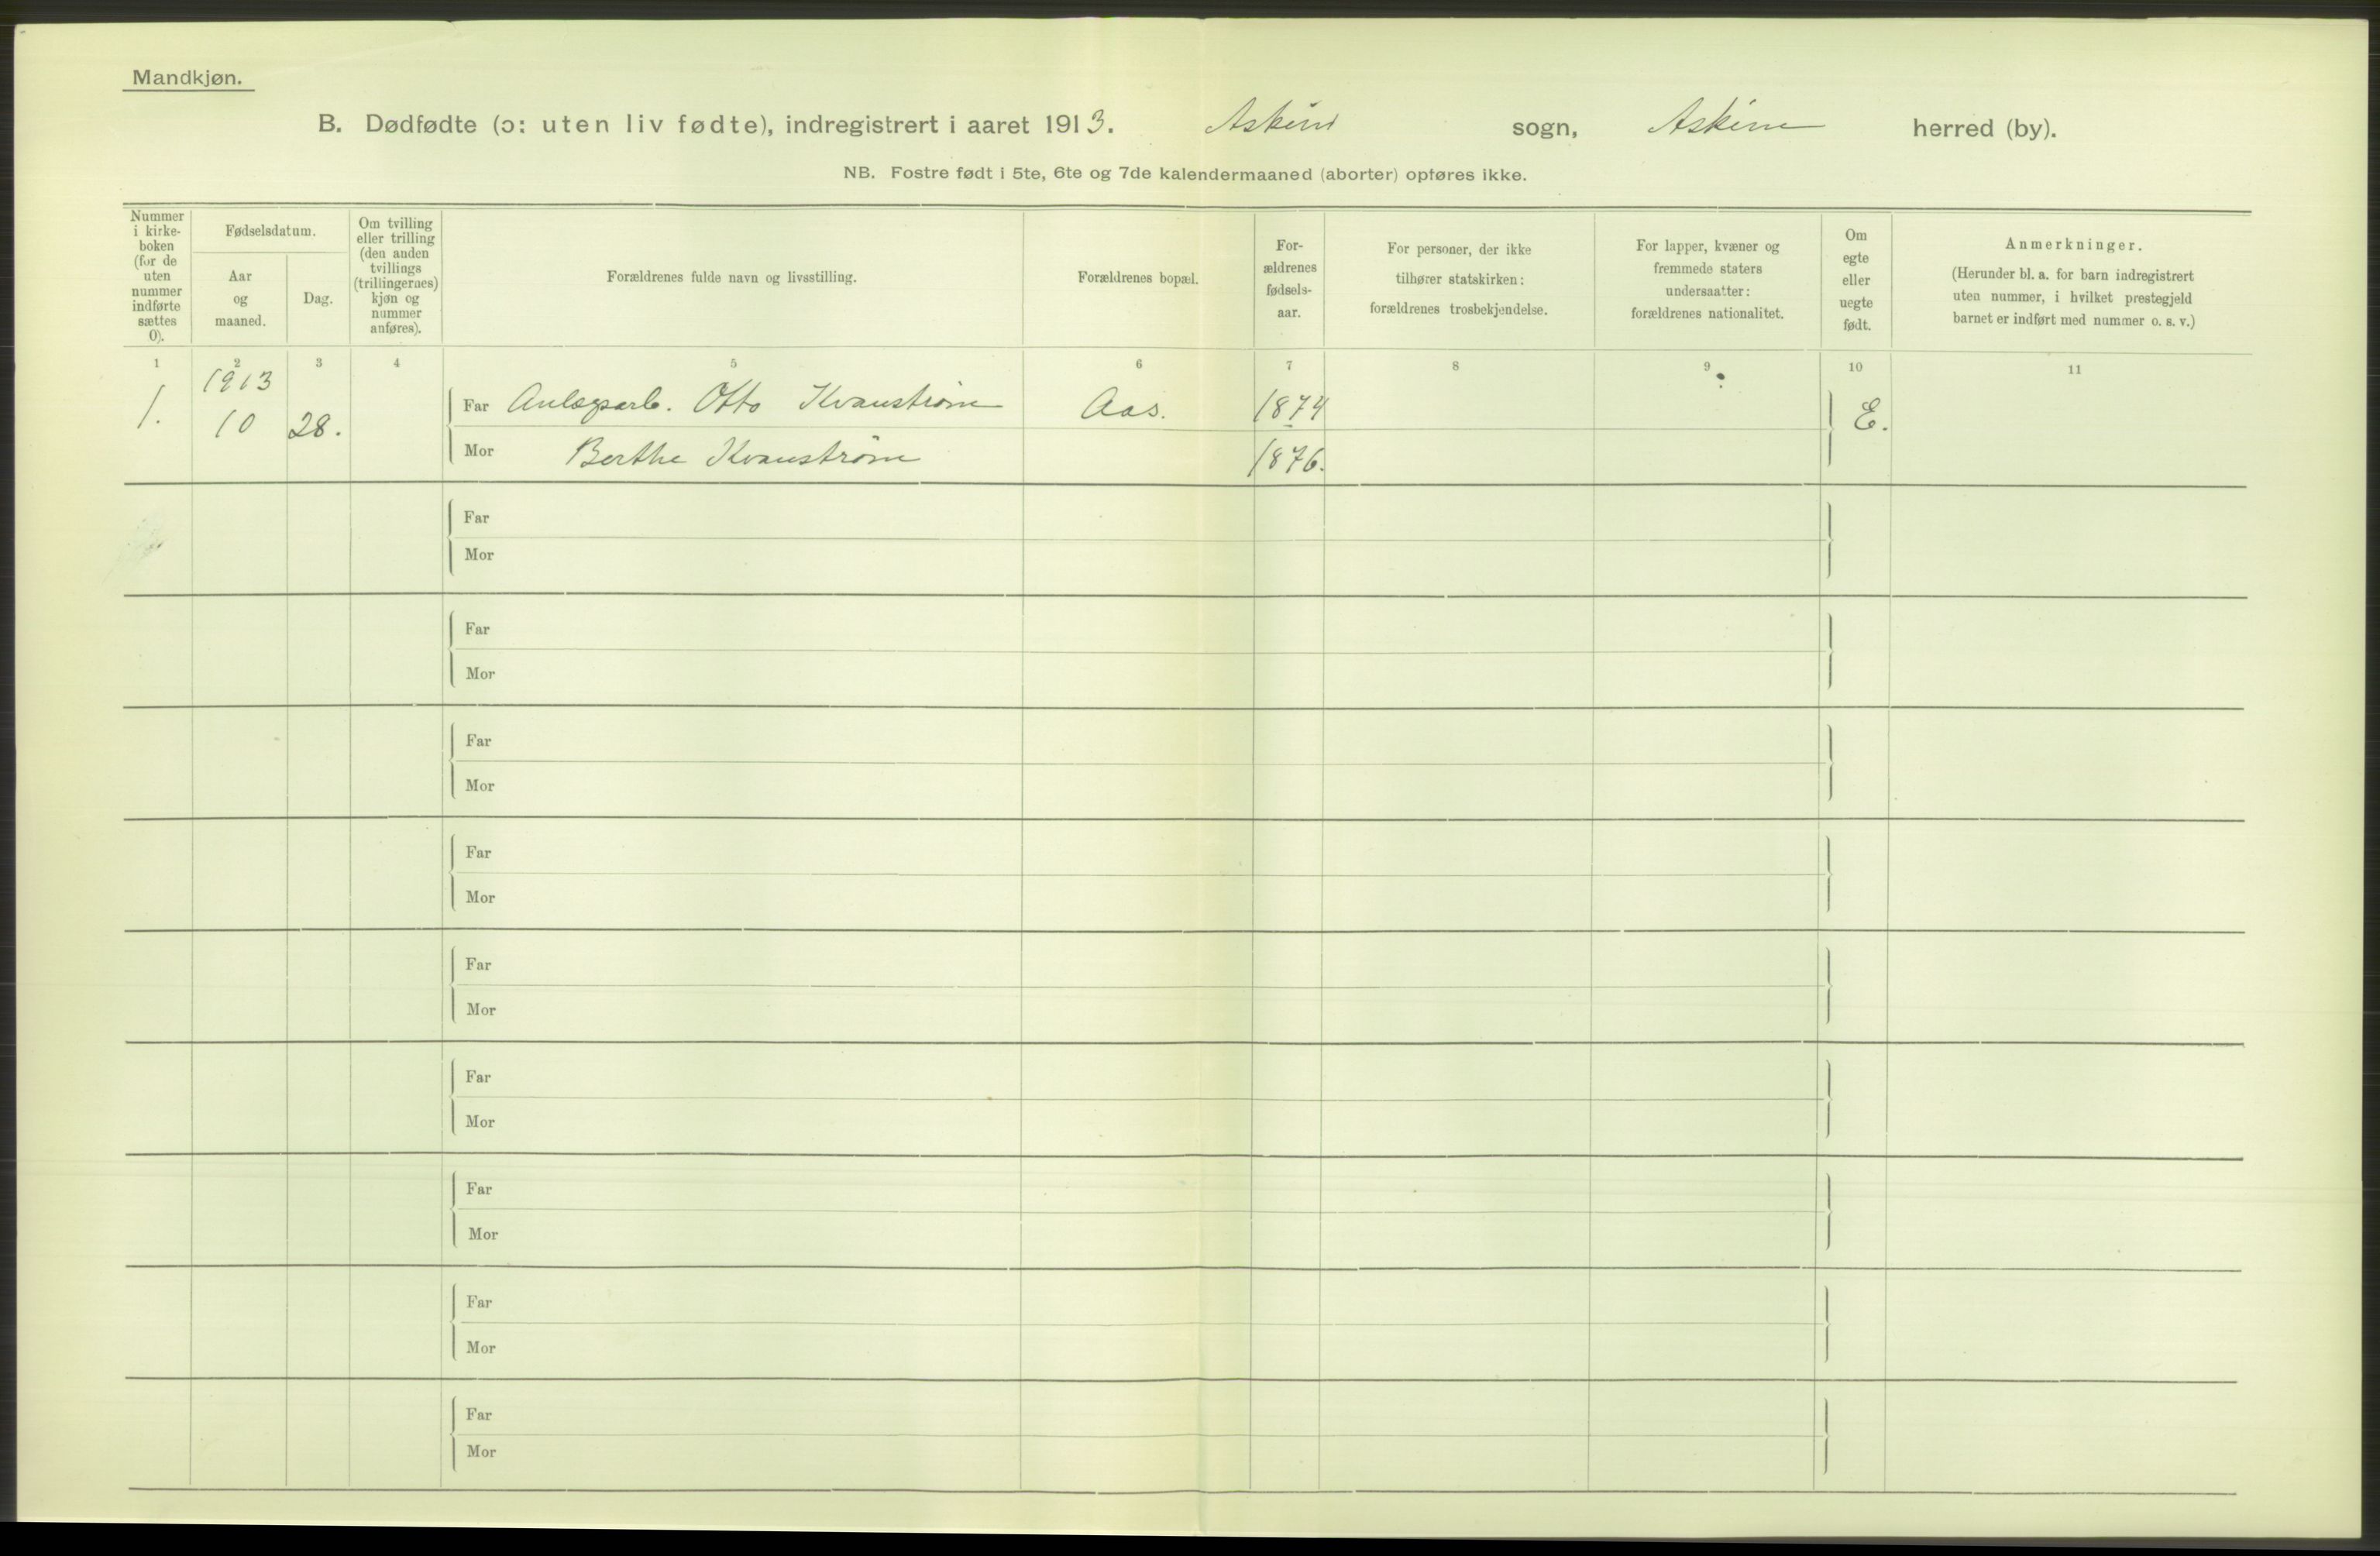 Mandkjøn.
B. Dødfødte (ɔ: uten liv fødte), indregistrert i aaret 1913. Askim sogn, Askim herred (by).
NB. Fostre født i 5te, 6te og 7de kalendermaaned (aborter) opføres ikke.
Nummer i kirke-boken (for de uten nummer indførte sættes 0).
Fødselsdatum.
Aar og maaned.
Dag.
Om tvilling eller trilling (den anden tvillings (trillingernes) kjøn og nummer anføres).
Forældrenes fulde navn og livsstilling.
Forældrenes bopæl.
For-ældrenes fødsels-aar.
For personer, der ikke tilhører statskirken: forældrenes trosbekjendelse.
For lapper, kvæner og fremmede staters undersaatter: forældrenes nationalitet.
Om egte eller uegte født.
Anmerkninger.
(Herunder bl. a. for barn indregistrert uten nummer, i hvilket prestegjeld barnet er indført med nummer o. s. v.)
1 2 3 4 5 6 7 8 9 10 11
1. 1913 10 28. Far Anlægsarb. Otto Kvanstrøm Aas. 1874 E.
Mor Berthe Kvanstrøm 1876.
Far
Mor
Far
Mor
Far
Mor
Far
Mor
Far
Mor
Far
Mor
Far
Mor
Far
Mor
Far
Mor